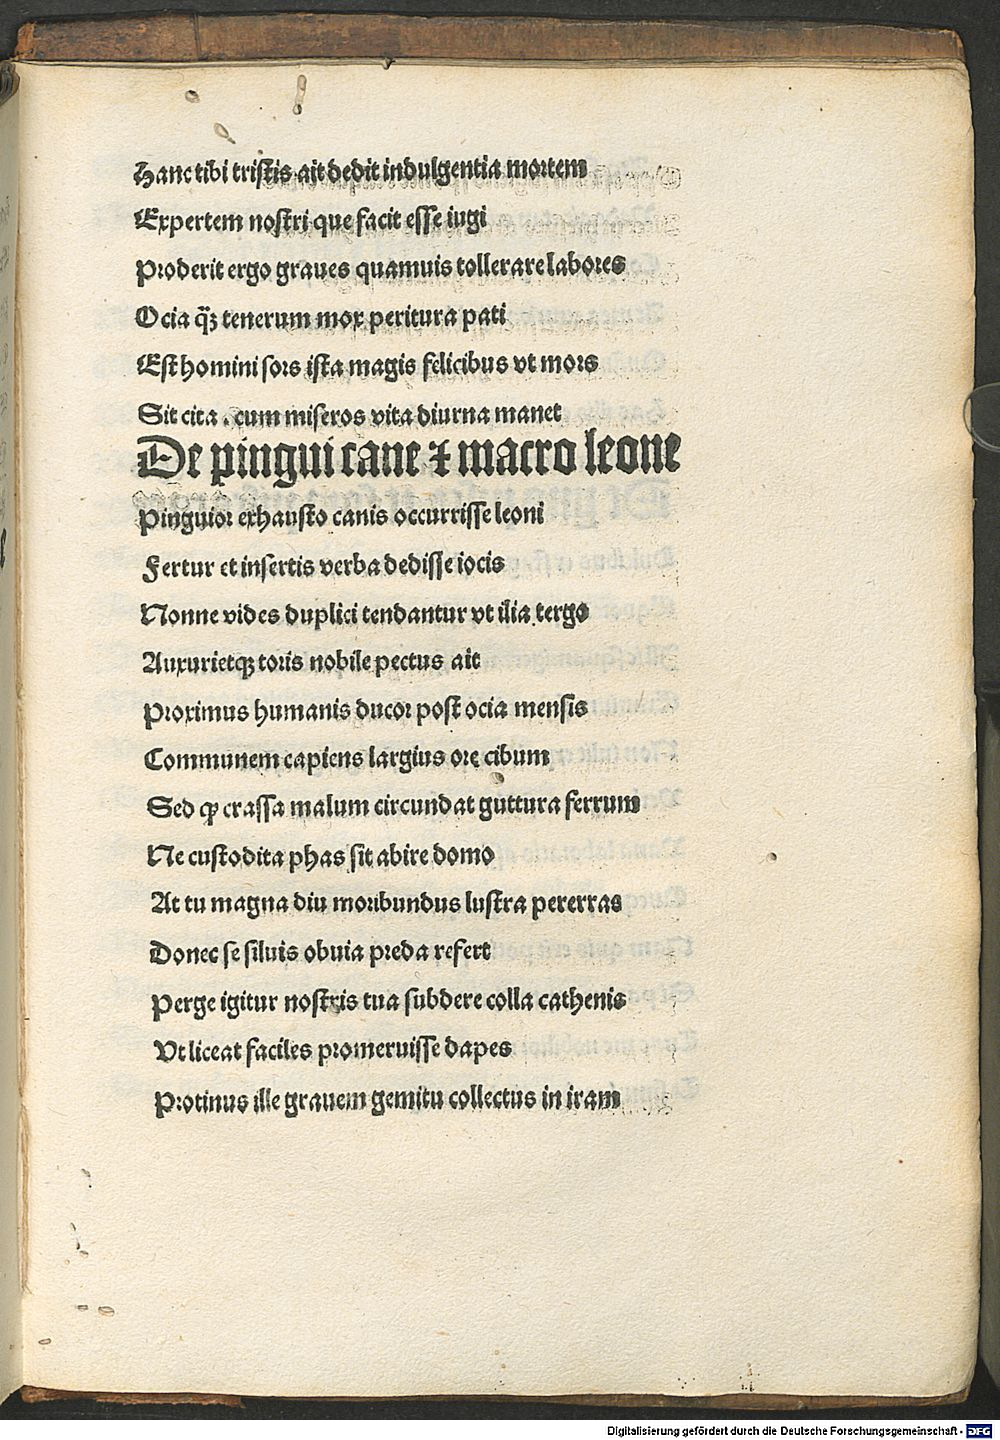 Hanc tibi tristis ait dedit indulgentia mortem
Expertem nostri que facit esse iugi
Proderit ergo graues quamuis tollerare labores
Ocia qꝫ tenerum mox peritura pati
Est homini sors ista magis felicibus vt mors
Sit cita . cum miseros vita diurna manet
De pingui cane ⁊ macro leone
Pinguior exhausto canis occurrisse leoni
Fertur et insertis verba dedisse iocis
Nonne vides duplici tendantur vt ilia tergo
Auxurietqꝫ toris nobile pectus ait
Proximus humanis ducor post ocia mensis
Communem capiens largius ore cibum
Sed ꝙ crassa malum circundat guttura ferrum
Ne custodita phas sit abire domo
At tu magna diu moribundus lustra pererras
Donec se siluis obuia preda refert
Perge igitur nostris tua subdere colla cathenis
Vt liceat faciles promeruisse dapes
Protinus ille grauem gemitu collectus in iram
Digitalisierung gefördert durch die Deutsche Forschungsgemeinschaft - DFG